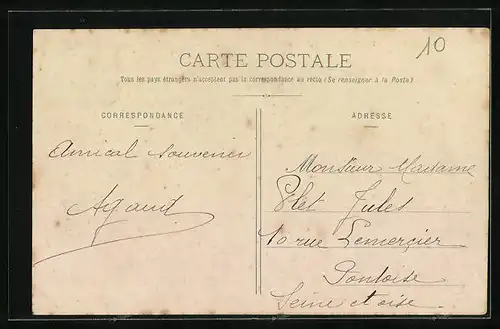 10
CARTE POSTALE
Tous les pays étrangers n'acceptent pas la correspondance au recto (Se renseigner à la Poste)
CORRESPONDANCE
Amical souvenir
ADRESSE
Monsieur Madame
Jules
10 rue Lemercier
Pontoise
Seine et oise